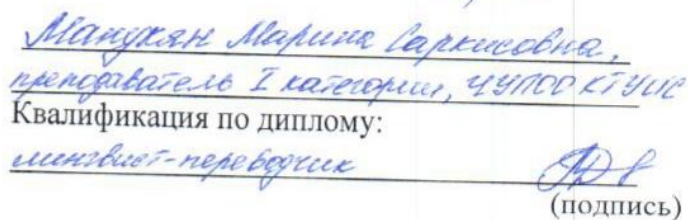 Манукян Марина Саркисовна,
преподаватель I категории, ЧУПОО КТУИС
Квалификация по диплому:
лингвист-переводчик
(подпись)